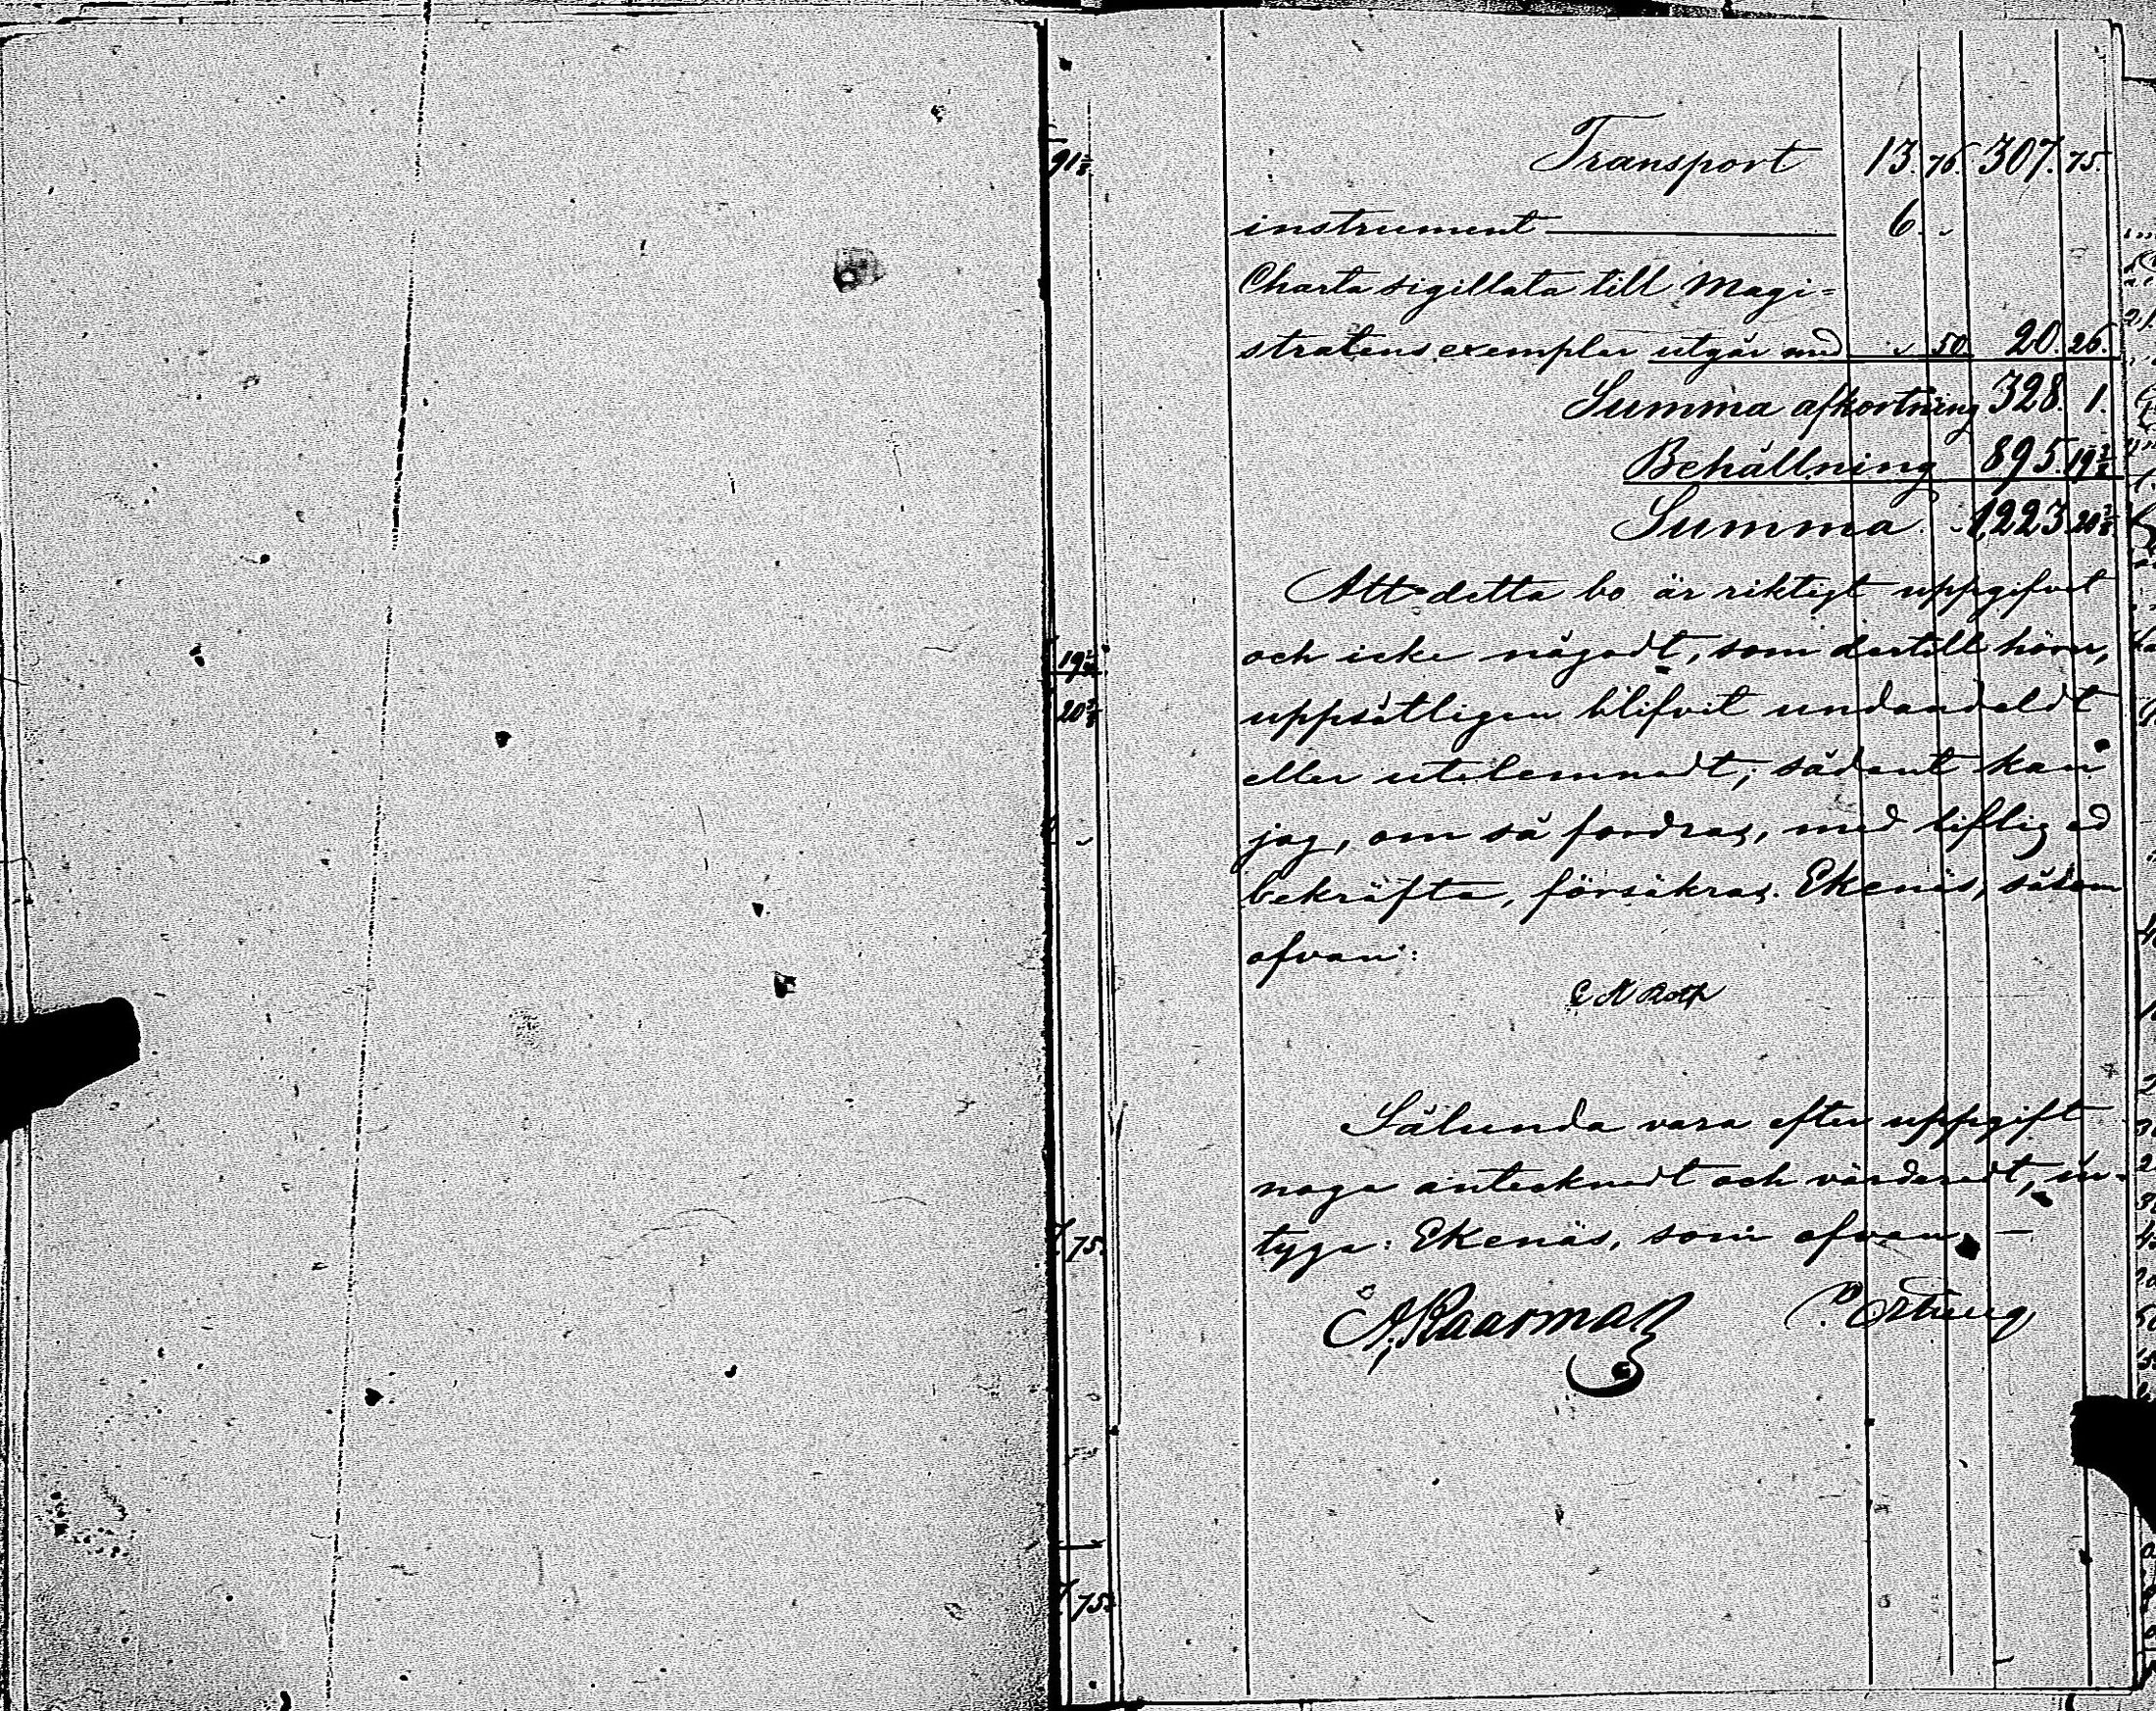 Transport 13. 76. 307. 75.
instrument 6. -
Charta sigillata till Magi=
stratens exemplar utgår med - 50. 20. 26.
Summa afkortning 328. 1.
Behållning 895. 19 2/7
Summa. - 1,223. 20 2/7
Att detta bo är riktigt uppgifvet
och icke något, som dertill hörer,
uppsåtligen blifvit undandoldt
eller utelemnadt; sådant kan
jag, om så fordras, med liflig ed
bekräfta, försäkras. Ekenäs, såsom
ofvan:
C N Roth
Sålunda vara efter uppgift
noga antecknadt och värderadt, in-
tyga: Ekenäs, som ofvan. —
A. Kaarman
91
19
20
75.
75.